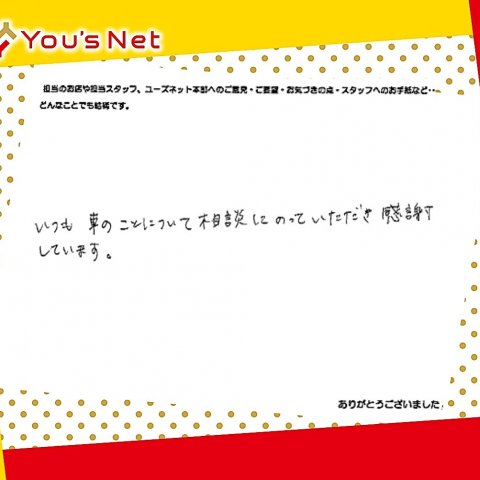 You's Net
担当のお店や担当スタッフ、ユーズネット本部へのご意見・ご要望・お気づきの点・スタッフへのお手紙など‥
どんなことでも結構です。
いつも 車の ことについて 相談に のって いただき 感謝
しています。
ありがとうございました